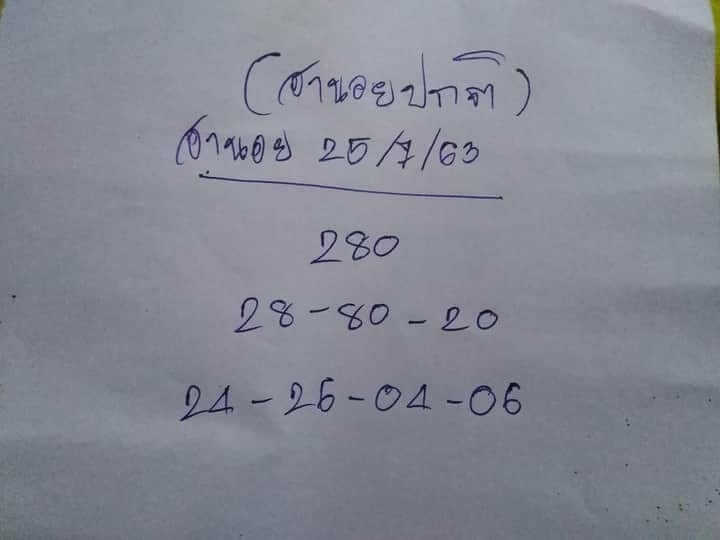 (ฮานอยปกติ)
ฮานอย 25/7/63
280
28-80-20
24-26-04-06